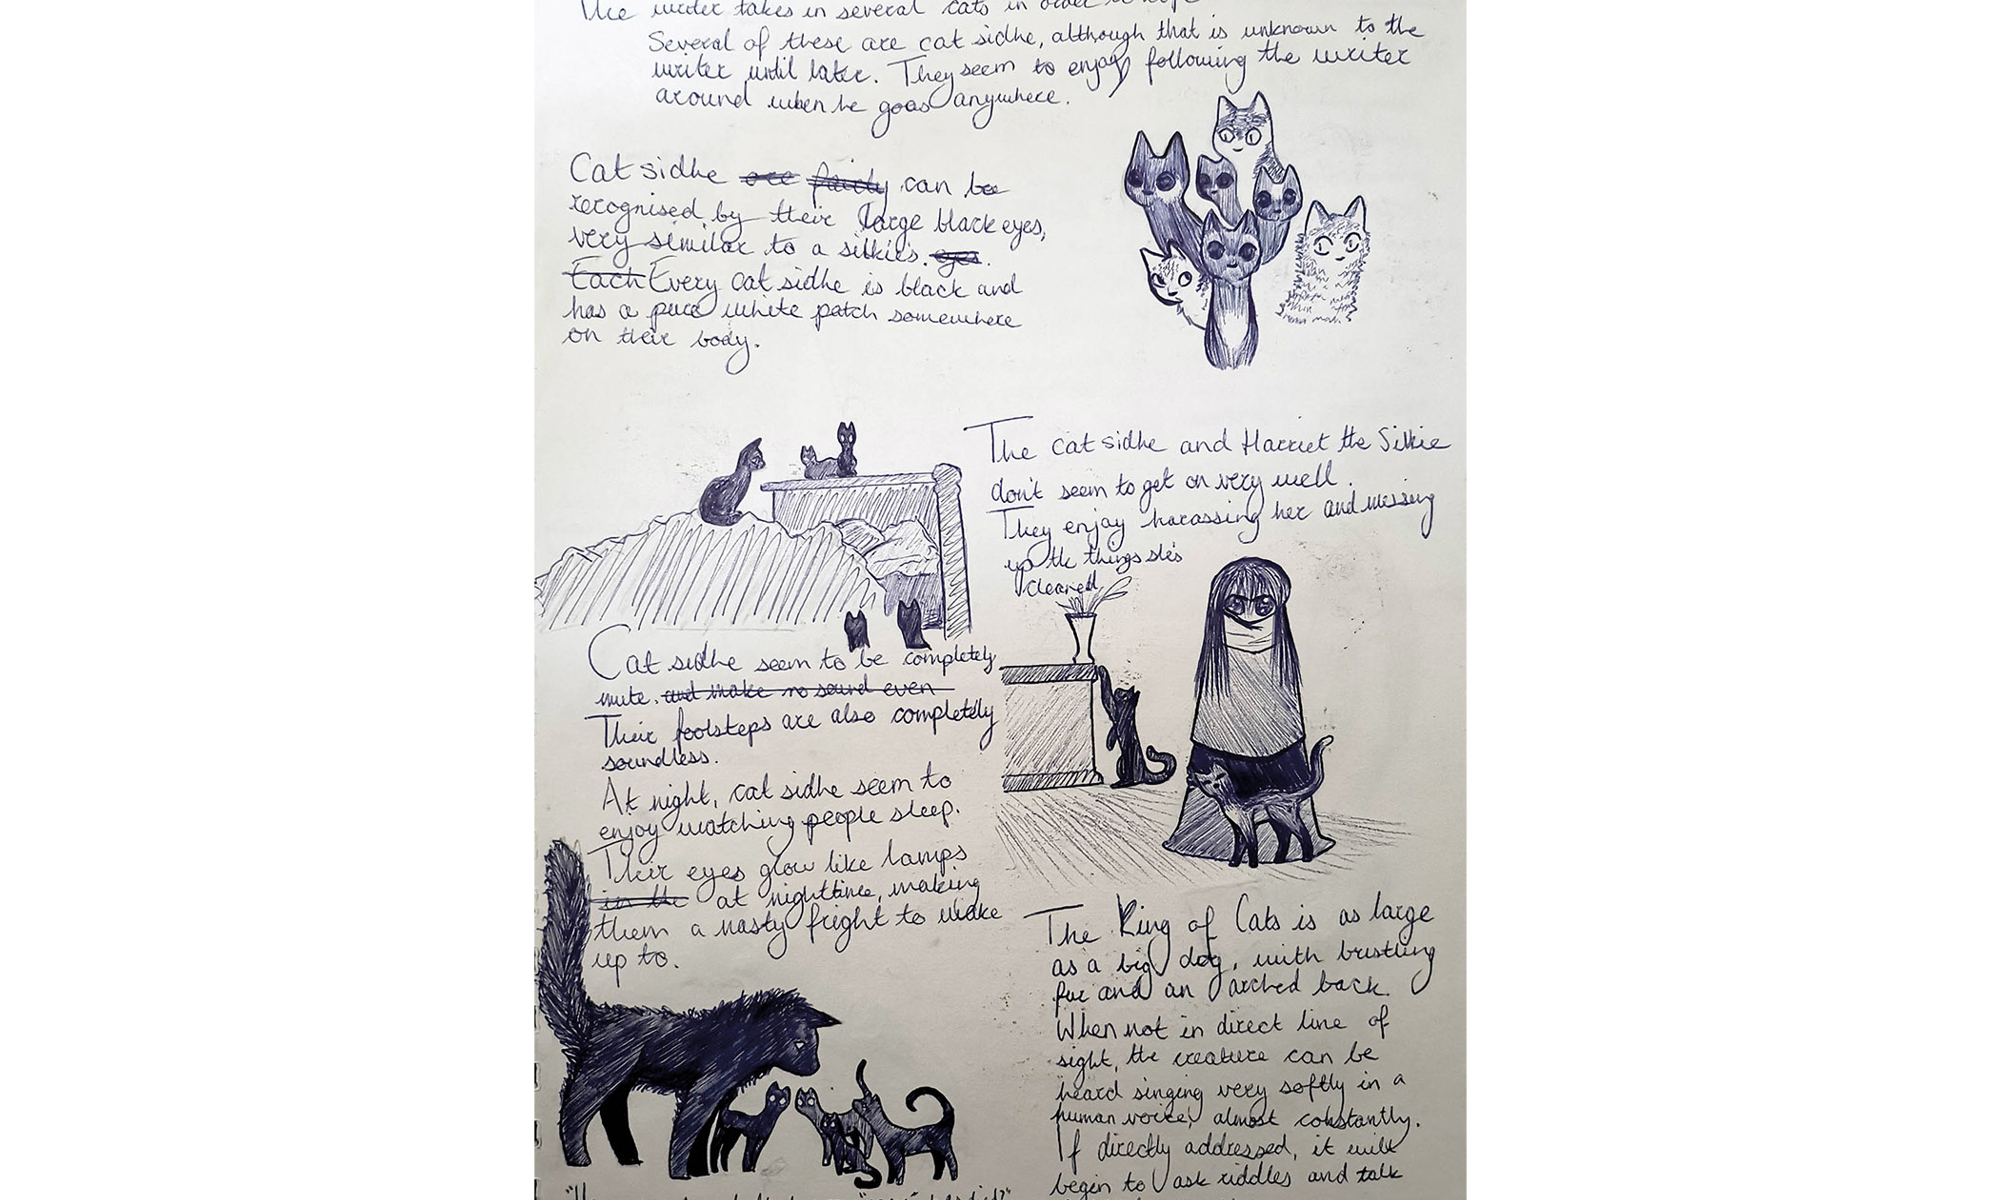 The writer takes in several cats in order to
Several of these are cat sidhe, although that is unknown to the
writer until later. They seem to enjoy following the writer
around when he goes anywhere.
Cat sidhe are fairly can be
recognised by their large black eyes,
very similar to a silkies. eyes.
Each Every cat sidhe is black and
has a pure white patch somewhere
on their body.
The cat sidhe and Harriet the Silkie
don't seem to get on very well.
They enjoy harassing her and messing
up the things she's
cleaned.
Cat sidhe seem to be completely
mute. and make no sound even
Their footsteps are also completely
soundless.
At night, cat sidhe seem to
enjoy watching people sleep.
Their eyes glow like lamps
in the at nighttime, making
them a nasty fright to wake
up to.
The King of Cats is as large
as a big dog, with bristling
fur and an arched back.
When not in direct line of
sight, the creature can be
heard singing very softly in a
human voice, almost constantly.
If directly addressed, it will
begin to ask riddles and talk